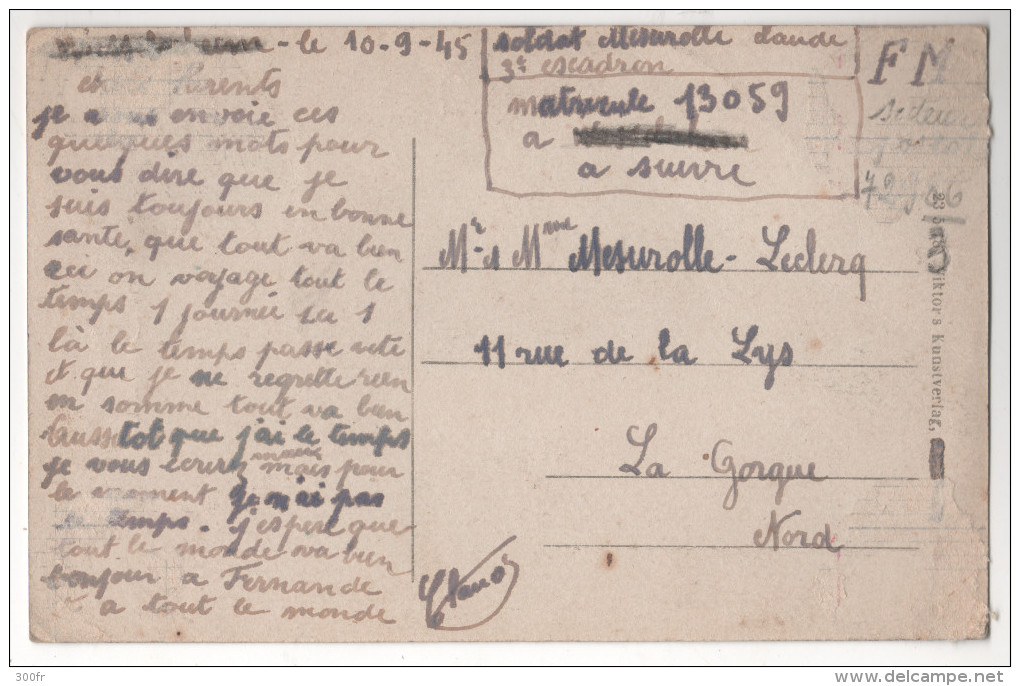 - le 10-9-45
chers Parents
je vous envoie ces
quelques mots pour
vous dire que je
suis toujours en bonne
santé, que tout va bien
ici on voyage tout le
temps 1 journée ici 1
là le temps passe vite
et que je ne regrette rien
en somme tout va bien
Aussitot que j'ai le temps
je vous écrirez mais pour
le moment je n'ai pas
le temps. j'espère que
tout le monde va bien
bonjour a Fernande
et a tout le monde
Claude
soldat Mesurolle Claude
3e escadron
matricule 13059
a
a suivre
FM
secteur
postal
72986
Mr et Mme Mesurolle-Leclerq
11 rue de la Lys
La Gorgue
Nord
Viktor s Kunstverlag,
300fr
www.delcampe.net